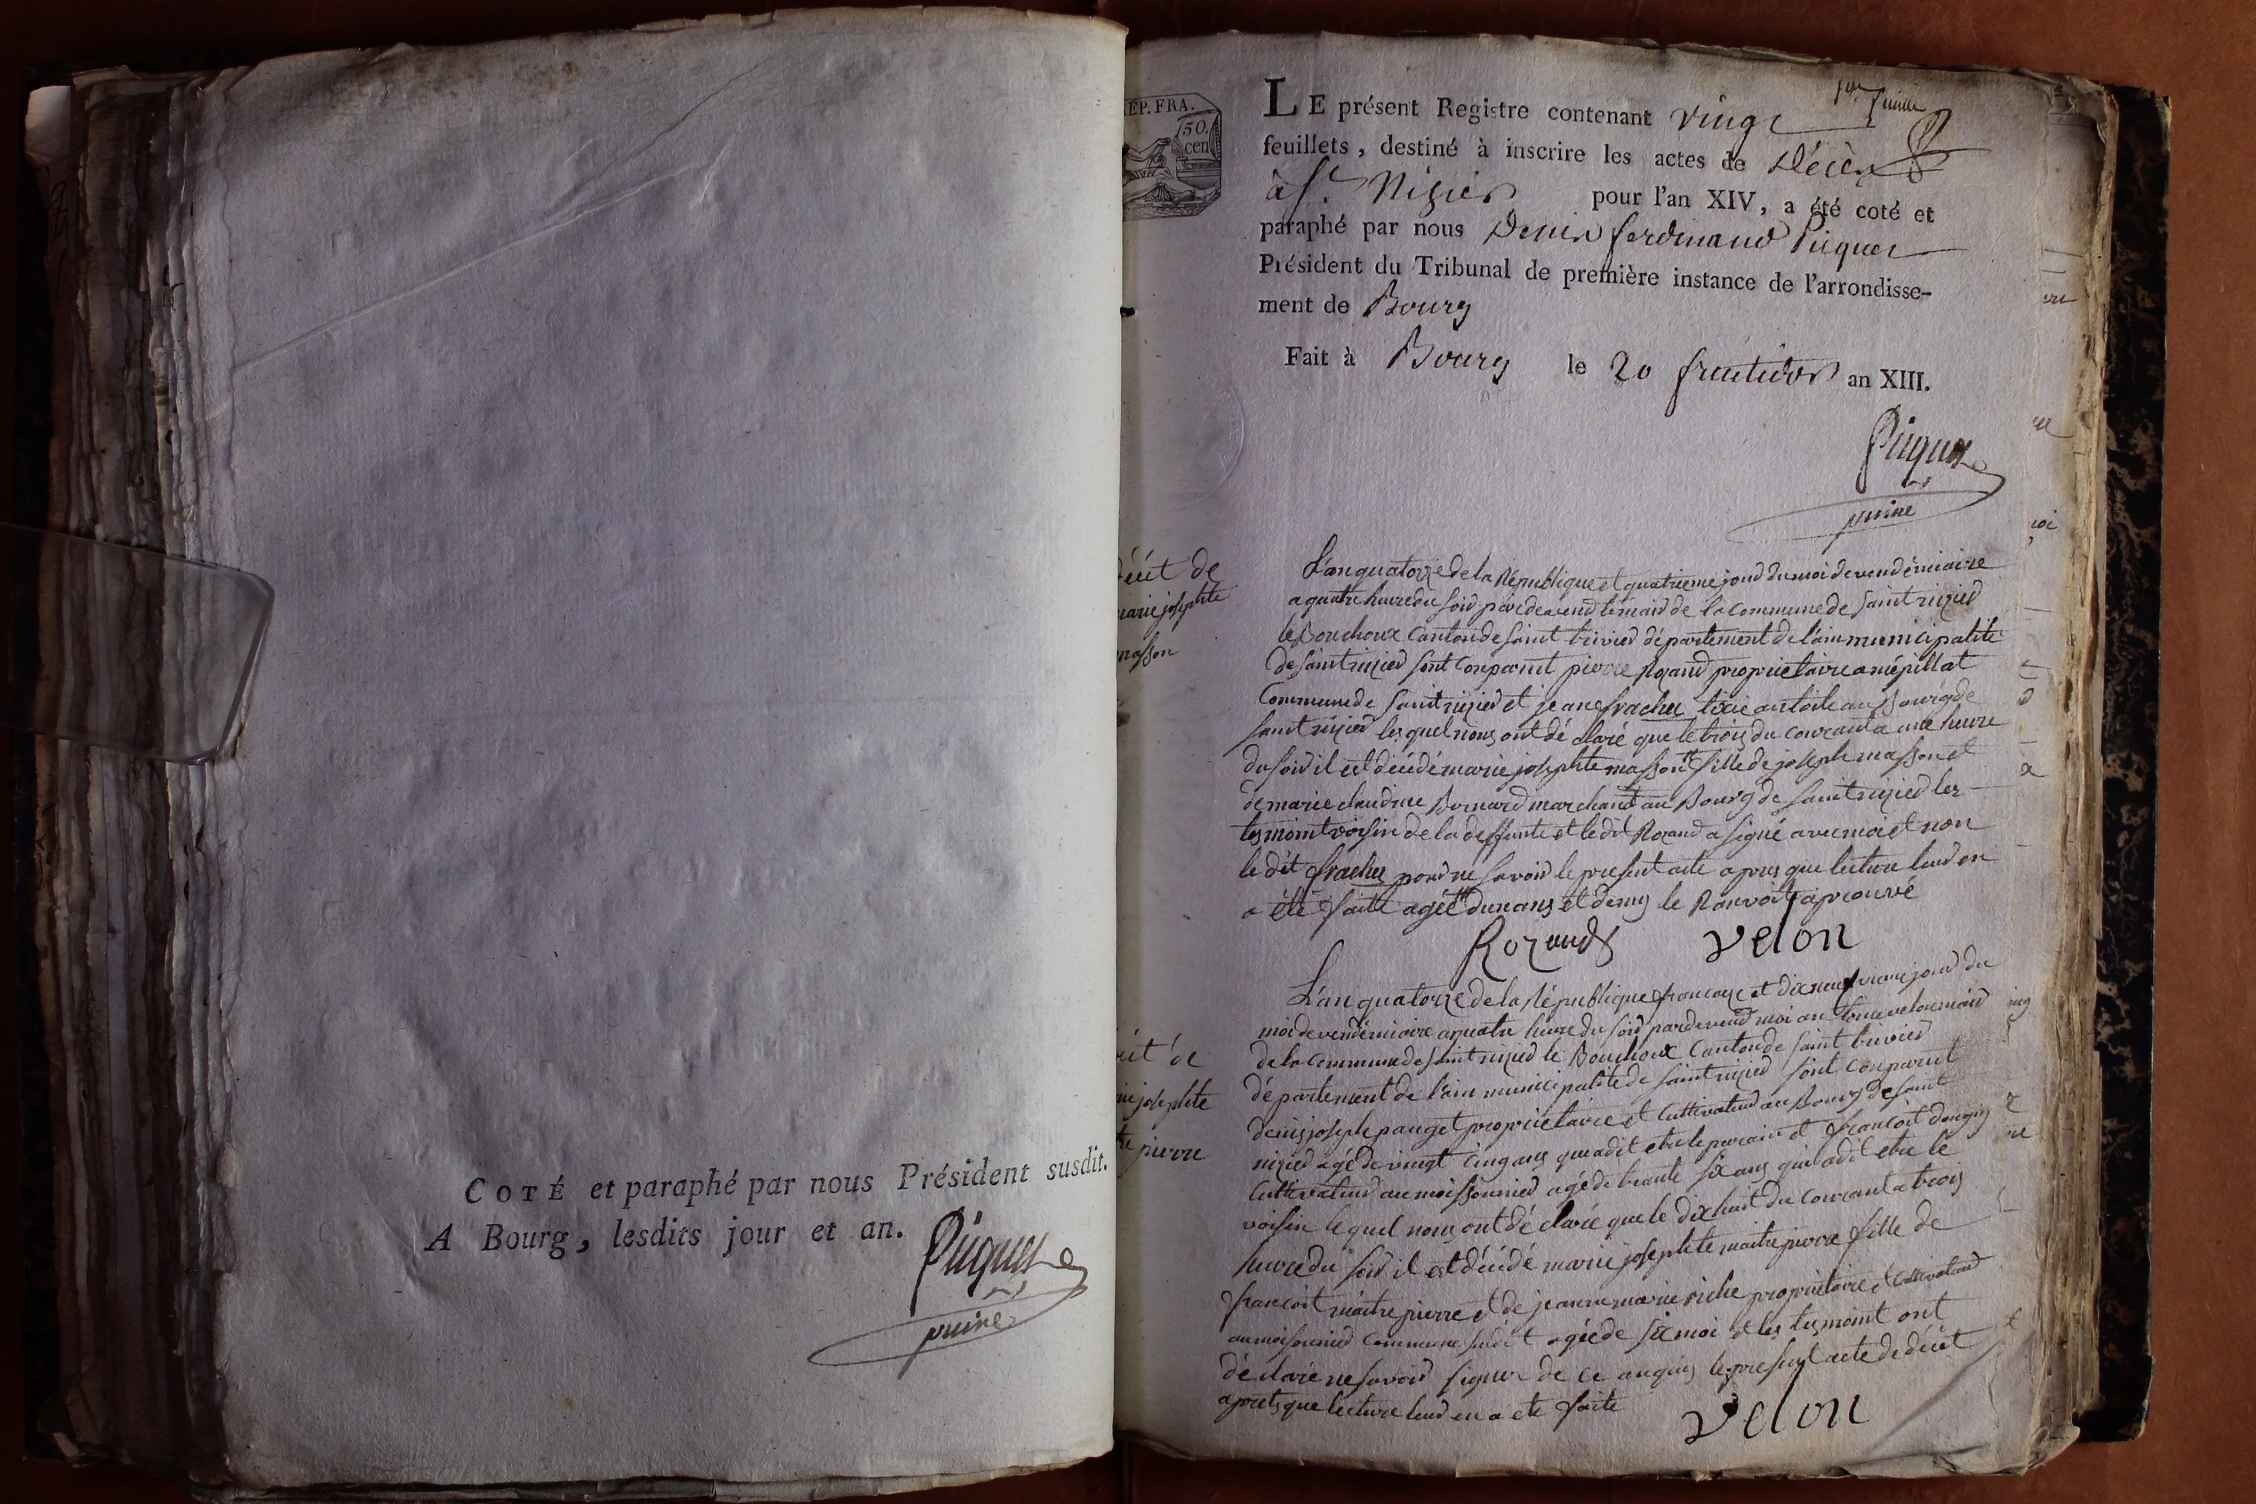 COTÉ et paraphé par nous Président susdit.
A Bourg, lesdits jour et an.
Picquet
puiné
EP. FRA.
50.
cen
LE présent Registre contenant vingt
feuillets, destiné à inscrire les actes de Décès
à St. Nizier pour l'an XIV, a été coté et
paraphé par nous Denis ferdinand Picquet
Président du Tribunal de première instance de l'arrondisse-
ment de Bourg
Fait à Bourg le 20 fructidor an XIII.
Picquet
puiné
décét de
marie josephte
masson
L'an quatorze de la République et quatrieme jour du moi de vendémiaire
a quatre heure du soir par devend le maid de la commune de saint nizied
le Bouchoux Canton de saint trivied département de l'ain municipalité
de saint nizied sont conparut pierre Rozand proprietaire a mépillat
Commune de saint nizied et jean frachet tixie an toile au Bourg de
saint nizied les quel nous ont dé claré que le trois du courant a une heure
du soir il est décédé marie josephte masson fille de joseph masson et
de marie claudine Bernard marchand au Bourg de saint nizied les
tesmoint voisin de la deffunte et le dit Rozand a signé avec moi et non
le dit frachet pour ne savoir le present acte apres que lecture leur en
a été faite agée dun ans et demy le Ranvoit aprouvé
Rozand velon
cét de
rie josephte
tre pierre
L'an quatorze de la République francaise et dix neufvieme jour du
moi de vendémiaire a quatre heure du soir par devend moi antoine velon maid
de la Commune de saint nizied le Bouchoux Canton de saint trivied
département de l'ain municipalité de saint nizied sont conparut
denis joseph pauget proprietaire et Cultivateur au Bourg de saint
nizied agé de vingt cinq ans que a dit etre le parain et francoit
Cultivateur au moissonnied agé de trante six ans qui a dit etre le
voisin le quel nous ont dé claré que le dix huit du courant a trois
heure du soir il est décédé marie josephte maitre pierre fille de
francoit maitre pierre et de jeanne marie riche proprietaire et Cultivateur
au moissonnied Commune sudit agée de six moi et les tesmoint ont
dé claré ne savoir signer de ce anquis le present acte de décét
aprest que lecture leur en a ete faite velon